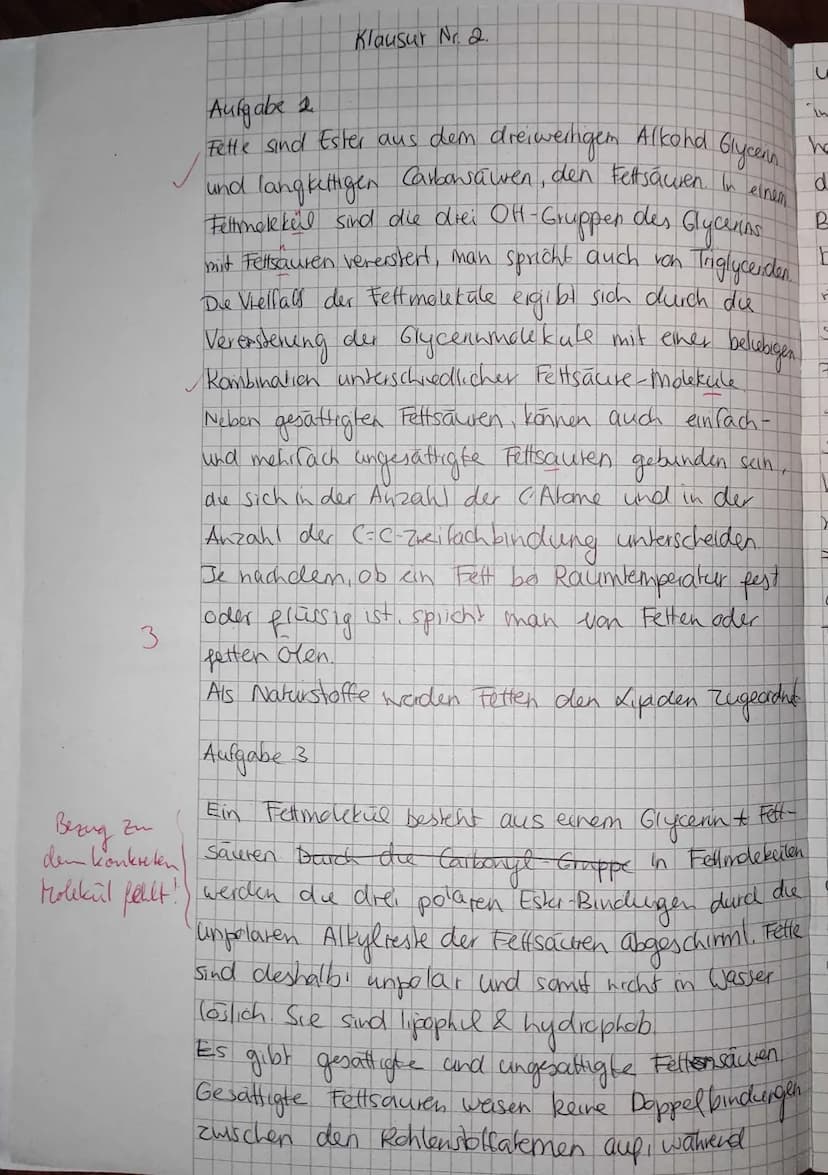 Klausur Nr. 2
Aufgabe 2
Fette sind Ester aus dem dreiwertigem Alkohol Glycerin
und langkettigen Carbonsäuren, den Fettsäuren. In einem
Fettmolekül sind die drei OH-Gruppen des Glycerins
mit Fettsäuren verestert, man spricht auch von Triglyceriden.
Die Vielfalt der Fettmoleküle ergibt sich durch die
Veresterung der Glycerinmoleküle mit einer beliebigen
Kombination unterschiedlicher Fettsäure-Moleküle.
Neben gesättigten Fettsäuren, können auch einfach-
und mehrfach ungesättigte Fettsäuren gebunden sein,
die sich in der Anzahl der C Atome und in der
Anzahl der C=C-Zweifachbindung unterscheiden.
Je nachdem, ob ein Fett bei Raumtemperatur fest
oder flüssig ist, spricht man von Fetten oder
3
fetten Ölen.
Als Naturstoffe werden Fetten den Lipiden zugeordnet
Aufgabe 3
Ein Fettmolekül besteht aus einem Glycerin + Fett-
säuren Durch die Carbonyl-Gruppe in Fettmolekülen
werden die drei polaren Ester-Bindungen durch die
unpolaren Alkylreste der Fettsäuren abgeschirmt. Fette
sind deshalb unpolar und somit nicht in Wasser
löslich. Sie sind lipophil & hydrophob.
Es gibt gesättigte und ungesättigte Fettsäuren.
Gesättigte Fettsäuren weisen keine Doppelbindungen
zwischen den Kohlenstoffatomen auf, während
Bezug zu
dem konkreten
Molekül fehlt!